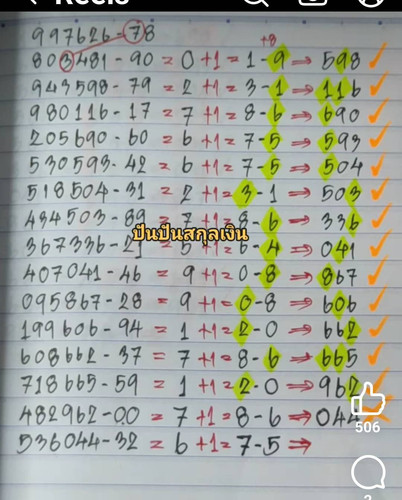 Reels
997626-78
+8
803481-90 = 0+1 = 1-9 ⇒ 598 ✓
943598-79 = 2+1 = 3-1 ⇒ 116 ✓
980116-17 = 7+1 = 8-6 ⇒ 690 ✓
205690-60 = 6+1 = 7-5 ⇒ 593 ✓
530593-42 = 6+1 = 7-5 ⇒ 504 ✓
518504-31 = 2+1 = 3-1 ⇒ 503 ✓
434503-89 = 7+1 = 8-6 ⇒ 336 ✓
ปันปันสกุลเงิน
367336-21 = 5+1 = 6-4 ⇒ 041 ✓
407041-46 = 9+1 = 0-8 ⇒ 867 ✓
095867-28 = 9+1 = 0-8 ⇒ 606 ✓
199606-94 = 1+1 = 2-0 ⇒ 662 ✓
608662-37 = 7+1 = 8-6 ⇒ 665 ✓
718665-59 = 1+1 = 2-0 ⇒ 962
482962-00 = 7+1 = 8-6 ⇒ 044
506
536044-32 = 6+1 = 7-5 ⇒